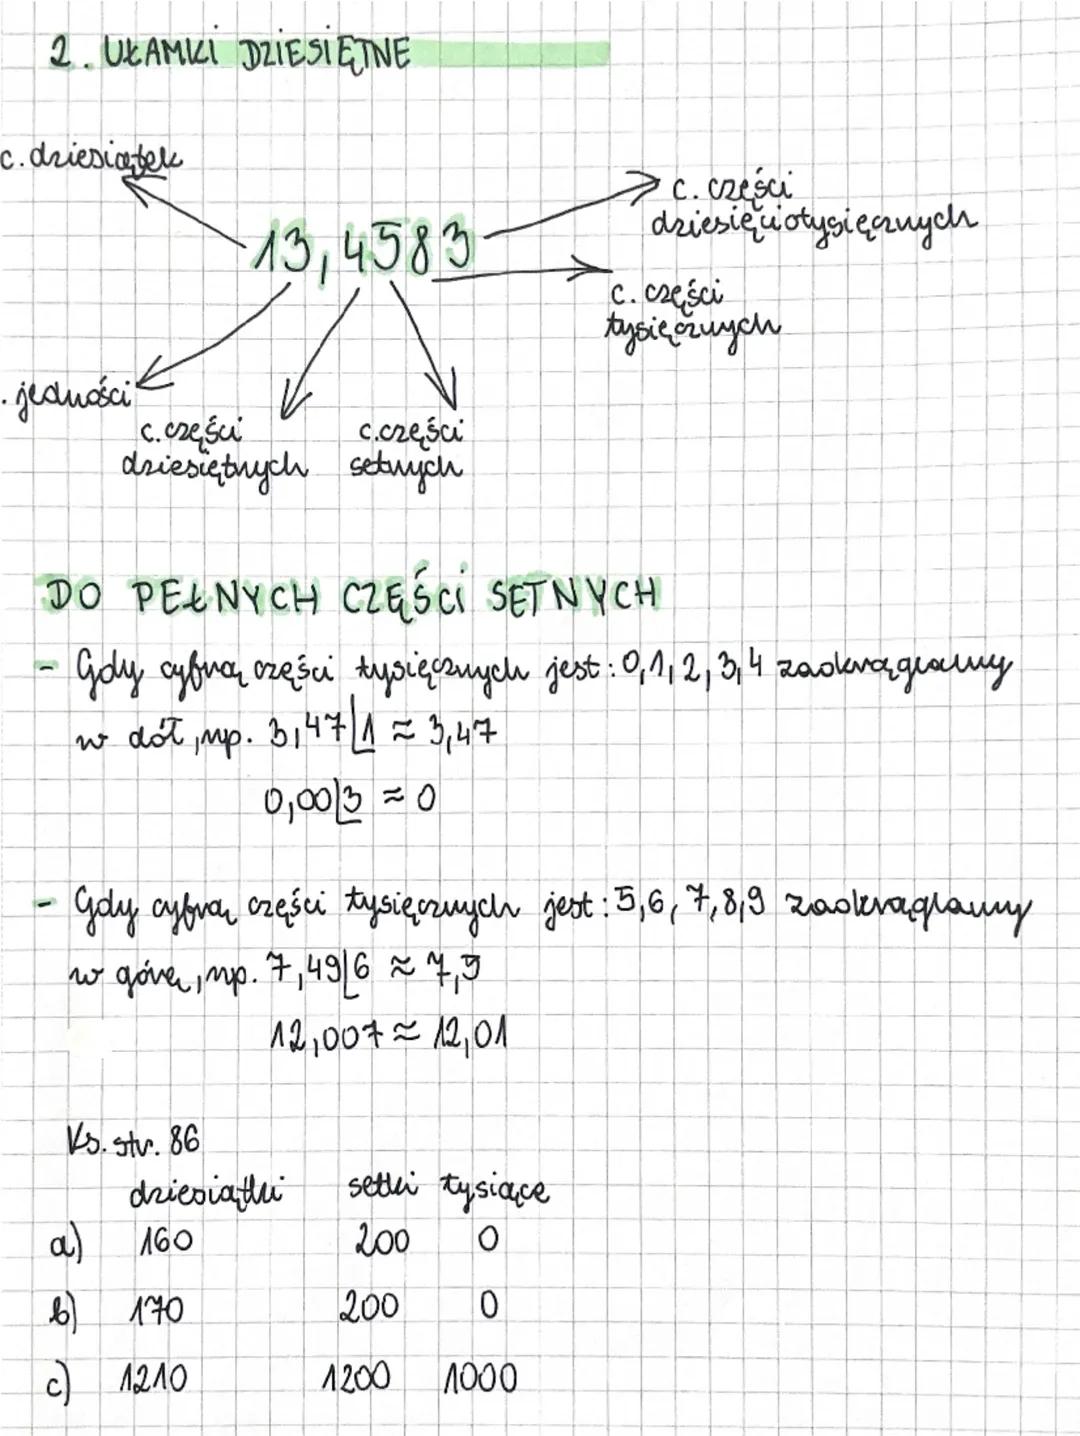 2. UŁAMKI DZIESIĘTNE
c. dziesiątek
13,4583
c. części
dziesięciotysięcznych
c. części
tysięcznych
. jedności
c. części
dziesiętnych
c. części
setnych
DO PEŁNYCH CZĘŚCI SETNYCH
- Gdy cyfrą części tysięcznych jest: 0,1,2,3,4 zaokrąglamy
w dół, np. 3,47|1 ≈ 3,47
0,00|3 ≈ 0
- Gdy cyfrą części tysięcznych jest: 5,6,7,8,9 zaokrąglamy
w górę, np. 7,49|6 ≈ 7,5
12,007 ≈ 12,01
Ks. str. 86
dziesiątki setki tysiące
a) 160 200 0
b) 170 200 0
c) 1210 1200 1000